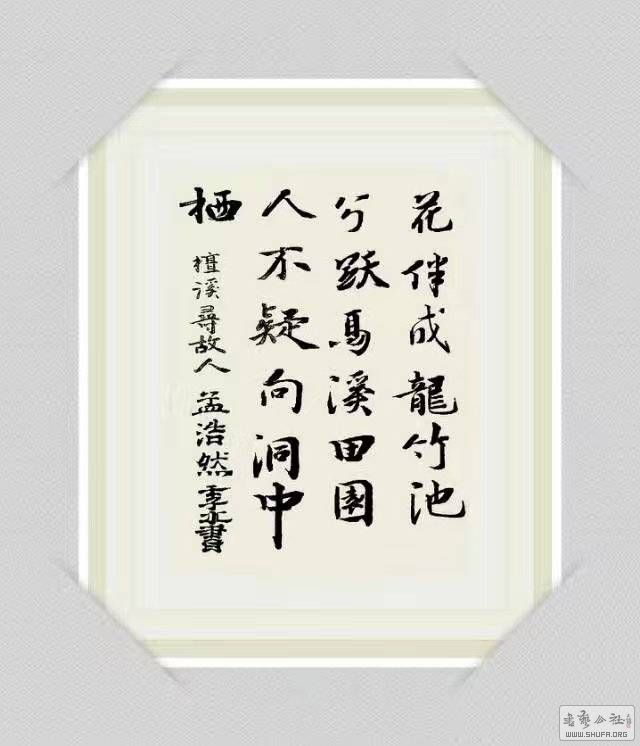 花伴成龍竹池
分跃馬溪田園
人不疑向洞中
栖
檀溪尋故人 孟浩然 書
書藝公社
WWW.SHUFA.ORG